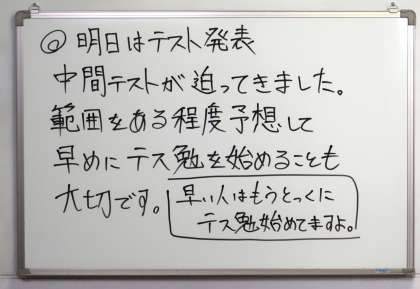 ◎明日はテスト発表
中間テストが迫ってきました。
範囲をある程度予想して
早めにテス勉を始めることも
大切です。
早い人はもうとっくに
テス勉始めてますよ。